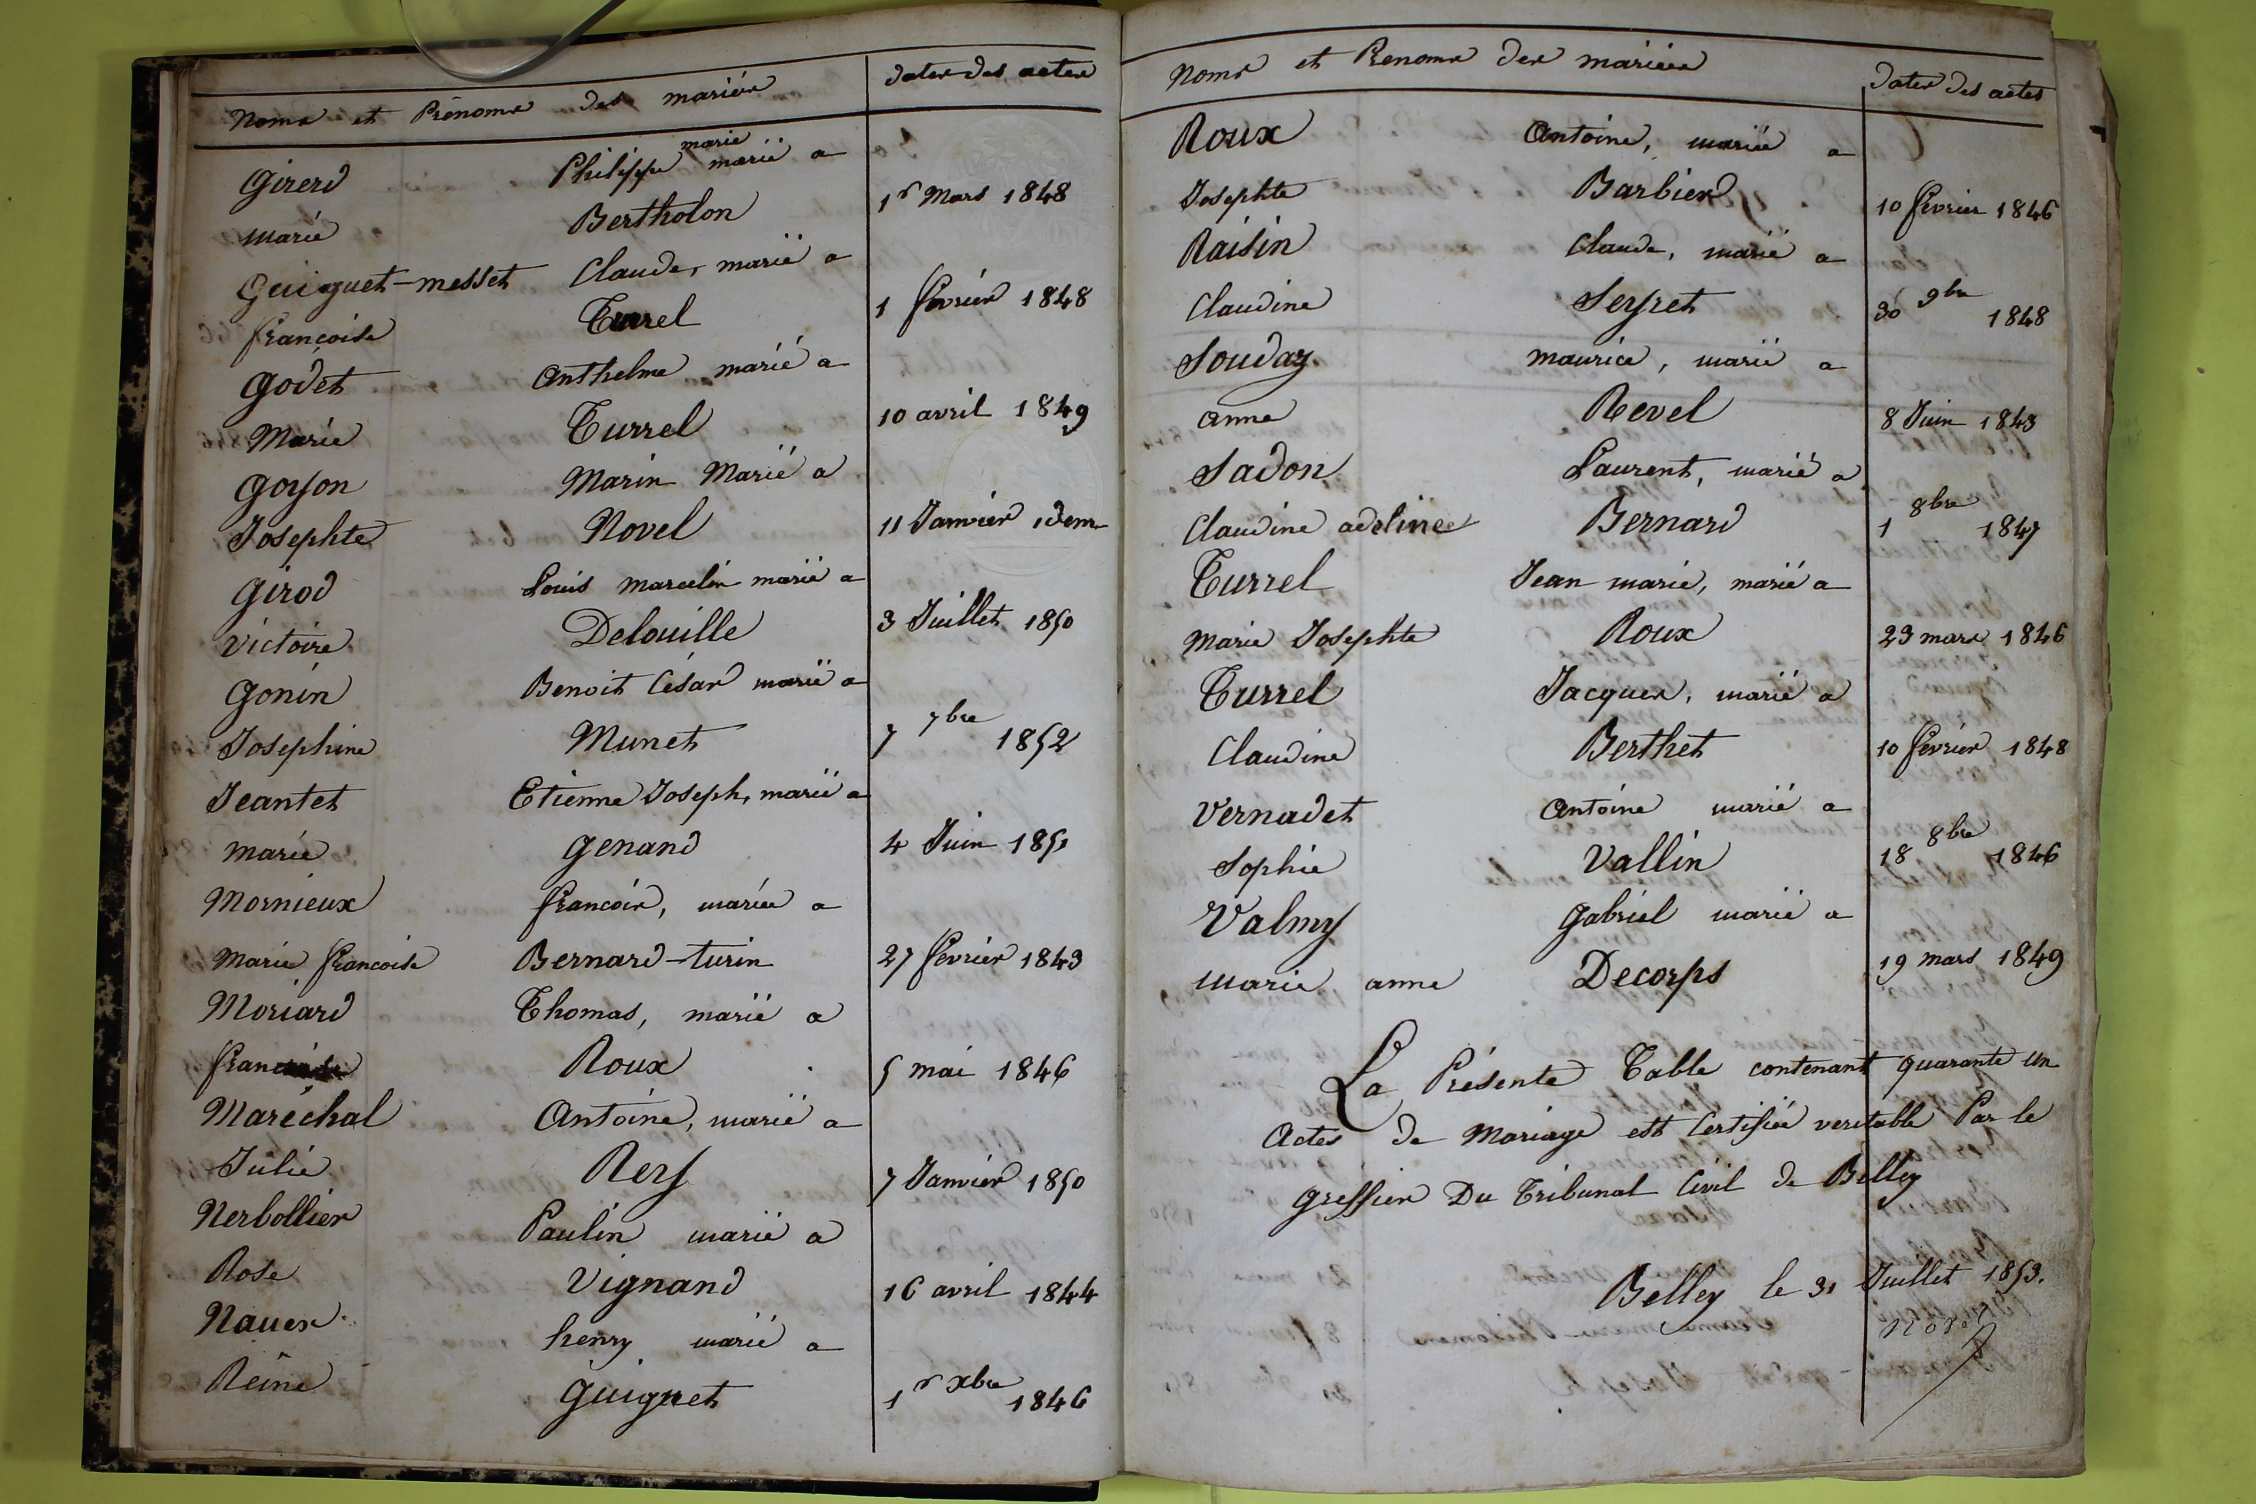 Noms et Prénoms des mariés dates des actes
Girerd Philippe marie marié a
Marie Bertholon 1r Mars 1848
Guiguet-messet Claude, marié a
françoise Turrel 1 février 1848
Godet Anthelme marié a
Marie Turrel 10 avril 1849
Goyon Marin Marié a
Josephte Novel 11 Janvier idem
Girod Louis marcelin marié a
Victoire Delouille 3 Juillet 1850
Gonin Benoit César marié a
Josephine Munet 7 7bre 1852
Jeantet Etienne Joseph, marié a
marie Genand 4 Juin 1851
Mornieux françois, mariée a
Marie francoise Bernard-turin 27 février 1843
Moriard Thomas, marié a
Roux 5 mai 1846
Maréchal Antoine, marié a
Julie Rey 7 Janvier 1850
Nerbollier Paulin marié a
Rose Vignand 16 avril 1844
Nauex henry marié a
Reine Guiguet 1r xbre 1846
Noms et Prenoms des mariées dates des actes
Roux Antoine, marié a
Josephte Barbier 10 février 1846
Raisin Claude, marié a
Claudine Seyret 30 9bre 1848
Souday maurice, marié a
anne Revel 8 Juin 1843
Sadon Laurent, marié a
Claudine adelinee Bernard 1 8bre 1847
Turrel Jean marie, marié a
Marie Josephte Roux 23 mars 1846
Turrel Jacques, marié a
Claudine Berthet 10 février 1848
Vernadet Antoine marié a
Sophie Vallin 18 8bre 1846
Valmy Gabriel marié a
marie anne Decorps 19 mars 1849
La Présente Table contenant quarante un
Actes de Mariage est Certifiée veritable Par le
greffier Du Tribunal Civil de Belley
Belley le 31 Juillet 1853.